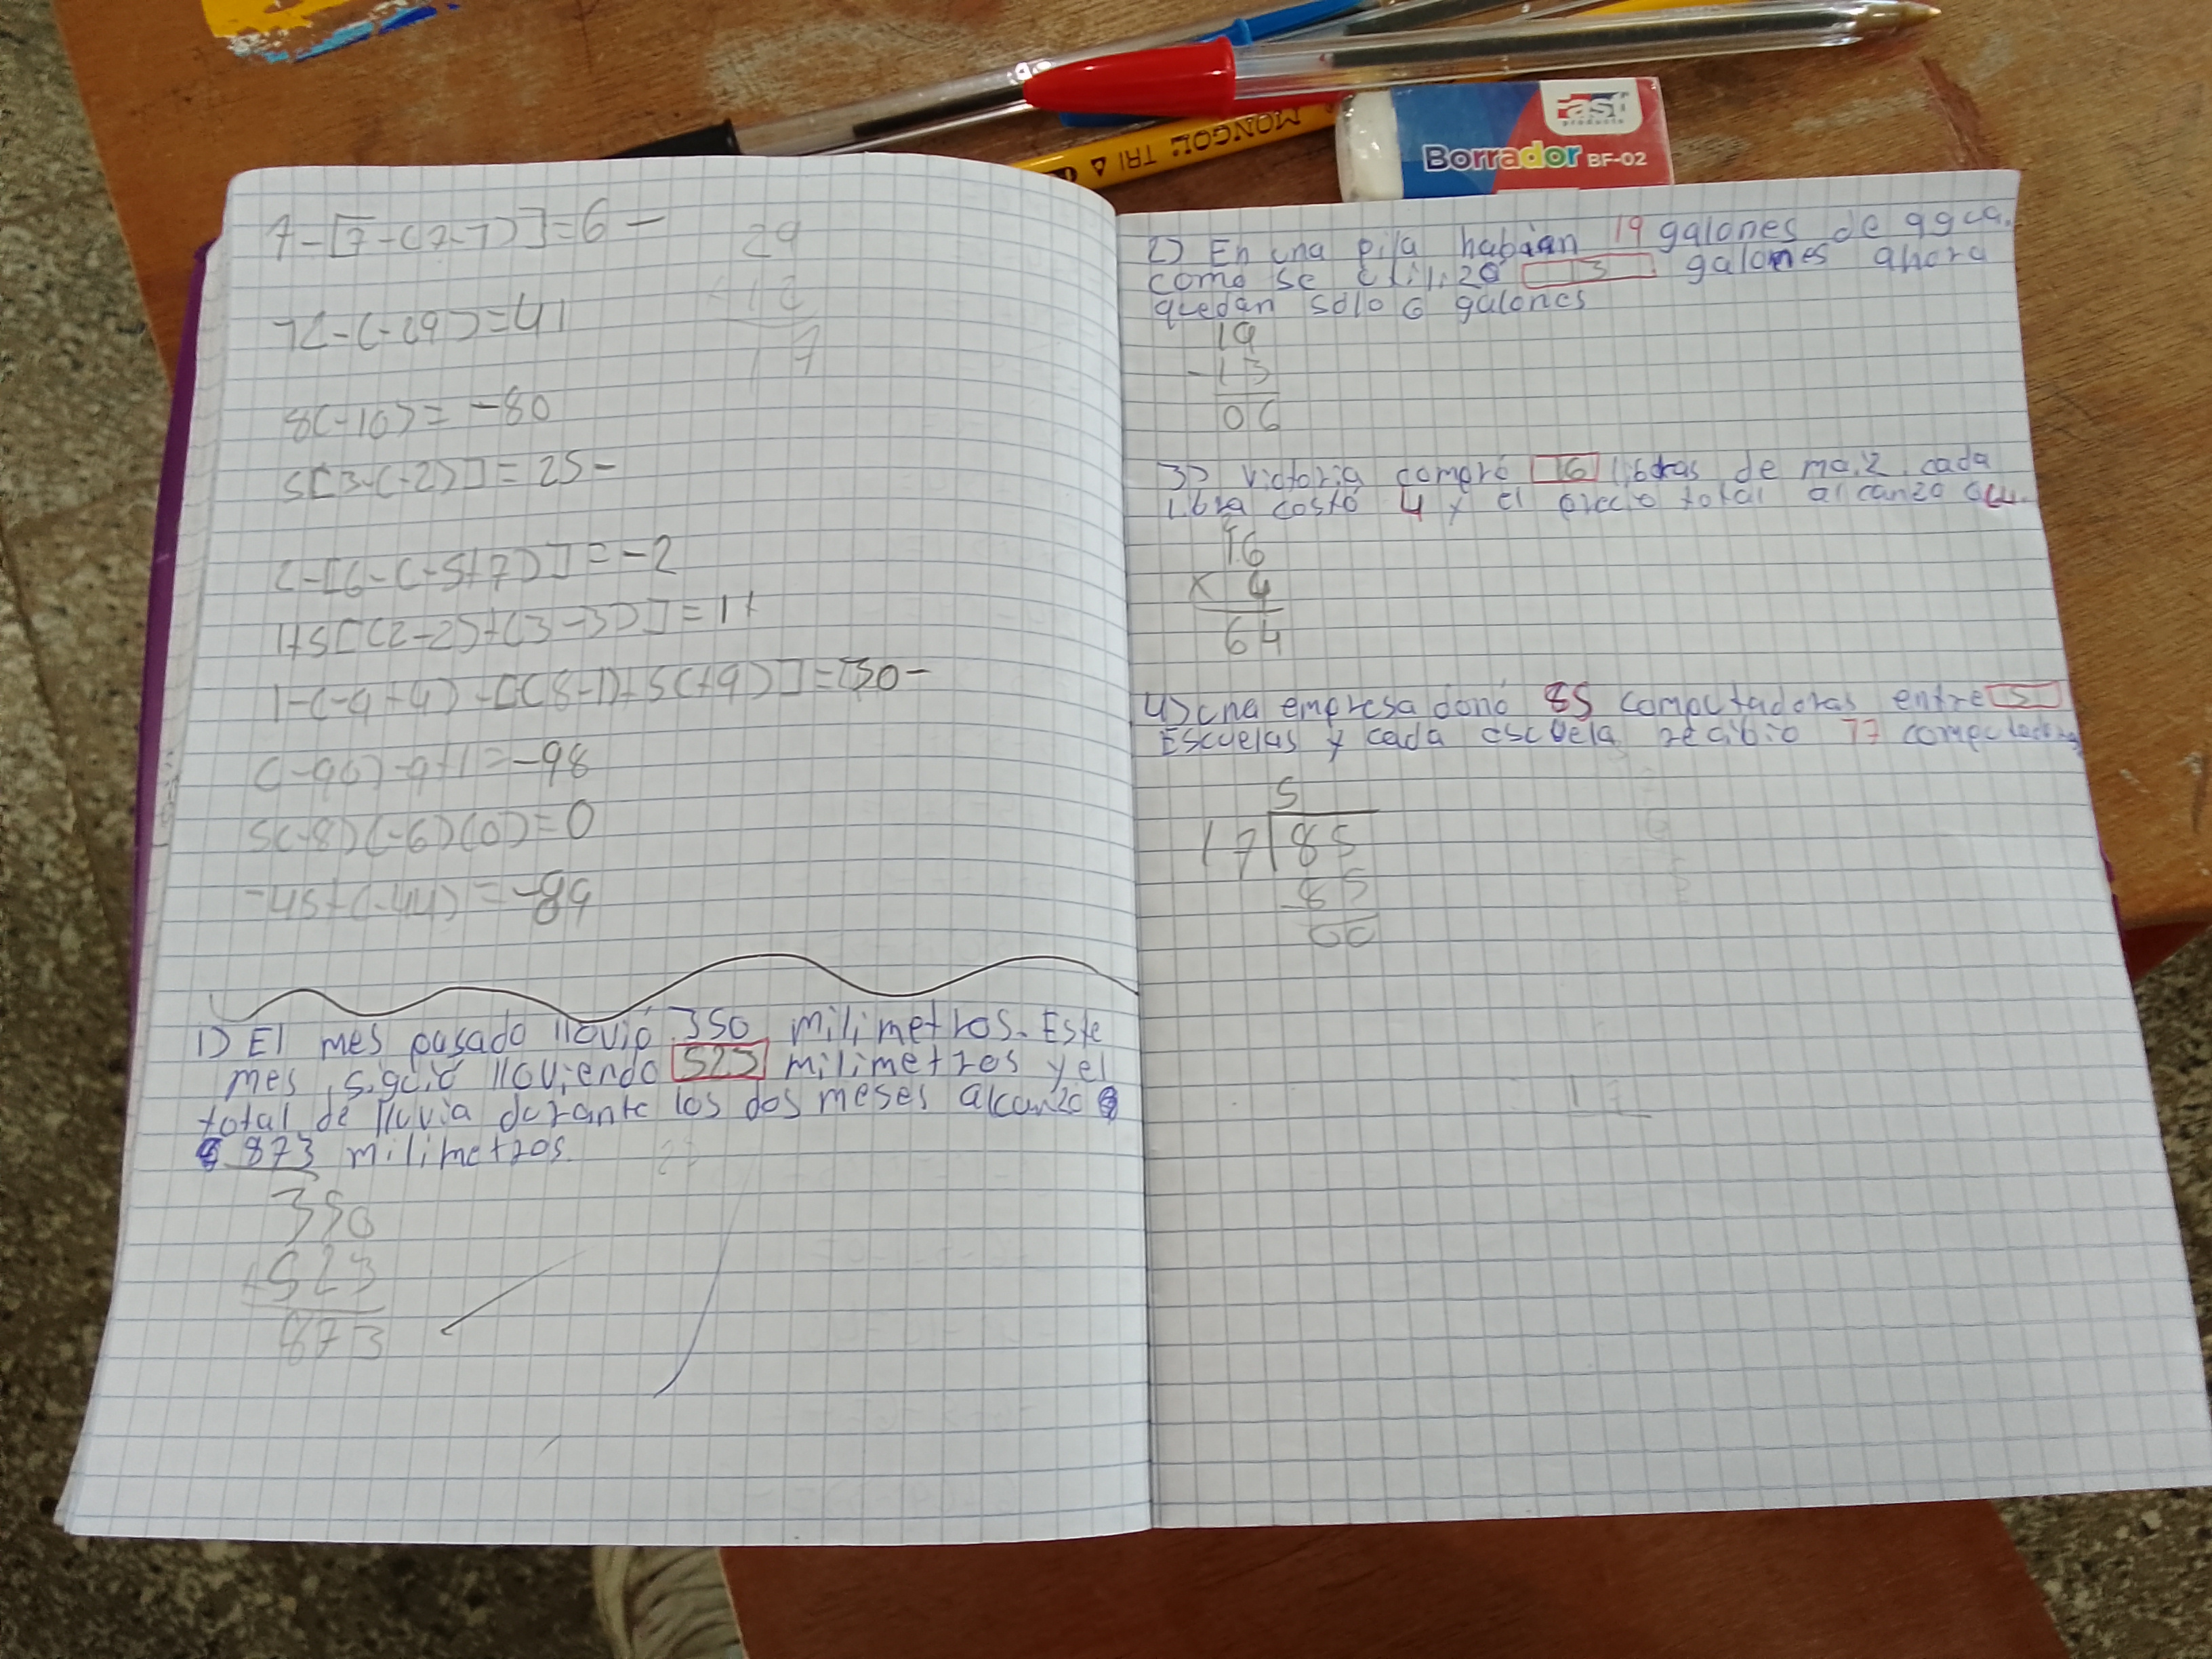 MONGOL TRI
Fast
products
Borrador BF-02
7-[7-(7-1)]=6 -
-12-(-29)=41
29
12
17
8(-10)= -80
5[3-(-2)]=25-
2-[9-(-5+7)]=-2
1+5[(2-2)+(3-3)]=1+
(-99)-9+1=-98
5(-8)(-6)(0)=0
-45+(-44)=-89
1) El mes pasado llovió 350 milimetros. Este
mes siguió lloviendo 523 milimetros y el
total de lluvia durante los dos meses alcanzo
873 milimetros.
350
+523
873
2) En una pila habian 19 galones de agua.
como se utilizo 13 galones ahora
quedan solo 6 galones
19
-13
06
3) Victoria compró 16 libras de maiz cada
libra costó 4 y el precio total alcanzo
16
x 4
64
4) una empresa donó 85 computadoras entre 5
Escuelas y cada escuela recibio 17 computadoras
5
17 85
-85
00